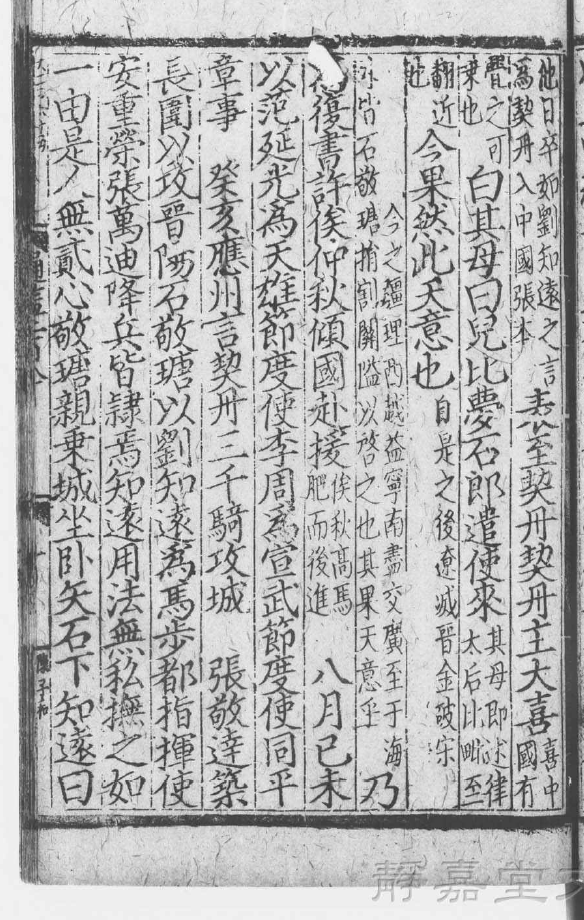 他日卒如劉知遠之言爲契丹入中國張本表至契丹契丹主大喜喜中國有
釁之可乗也白其母曰兒比夢石郎遣使來其母即述律太后比毗至
翻近也今果然此天意也自是之後遼滅晉金破宋
今之疆理西越益寧南盡交廣至于海外皆石敬瑭捐割關隘以啓之也其果天意乎乃
爲復書許俟仲秋傾國赴援俟秋高馬肥而後進八月己未
以范延光爲天雄節度使李周爲宣武節度使同平
章事 癸亥應州言契丹三千騎攻城 張敬達築
長圍以攻晉陽石敬瑭以劉知遠爲馬步都指揮使
安重榮張萬迪降兵皆隷焉知遠用法無私撫之如
一由是人無貳心敬瑭親乗城坐卧矢石下知遠曰
靜嘉堂